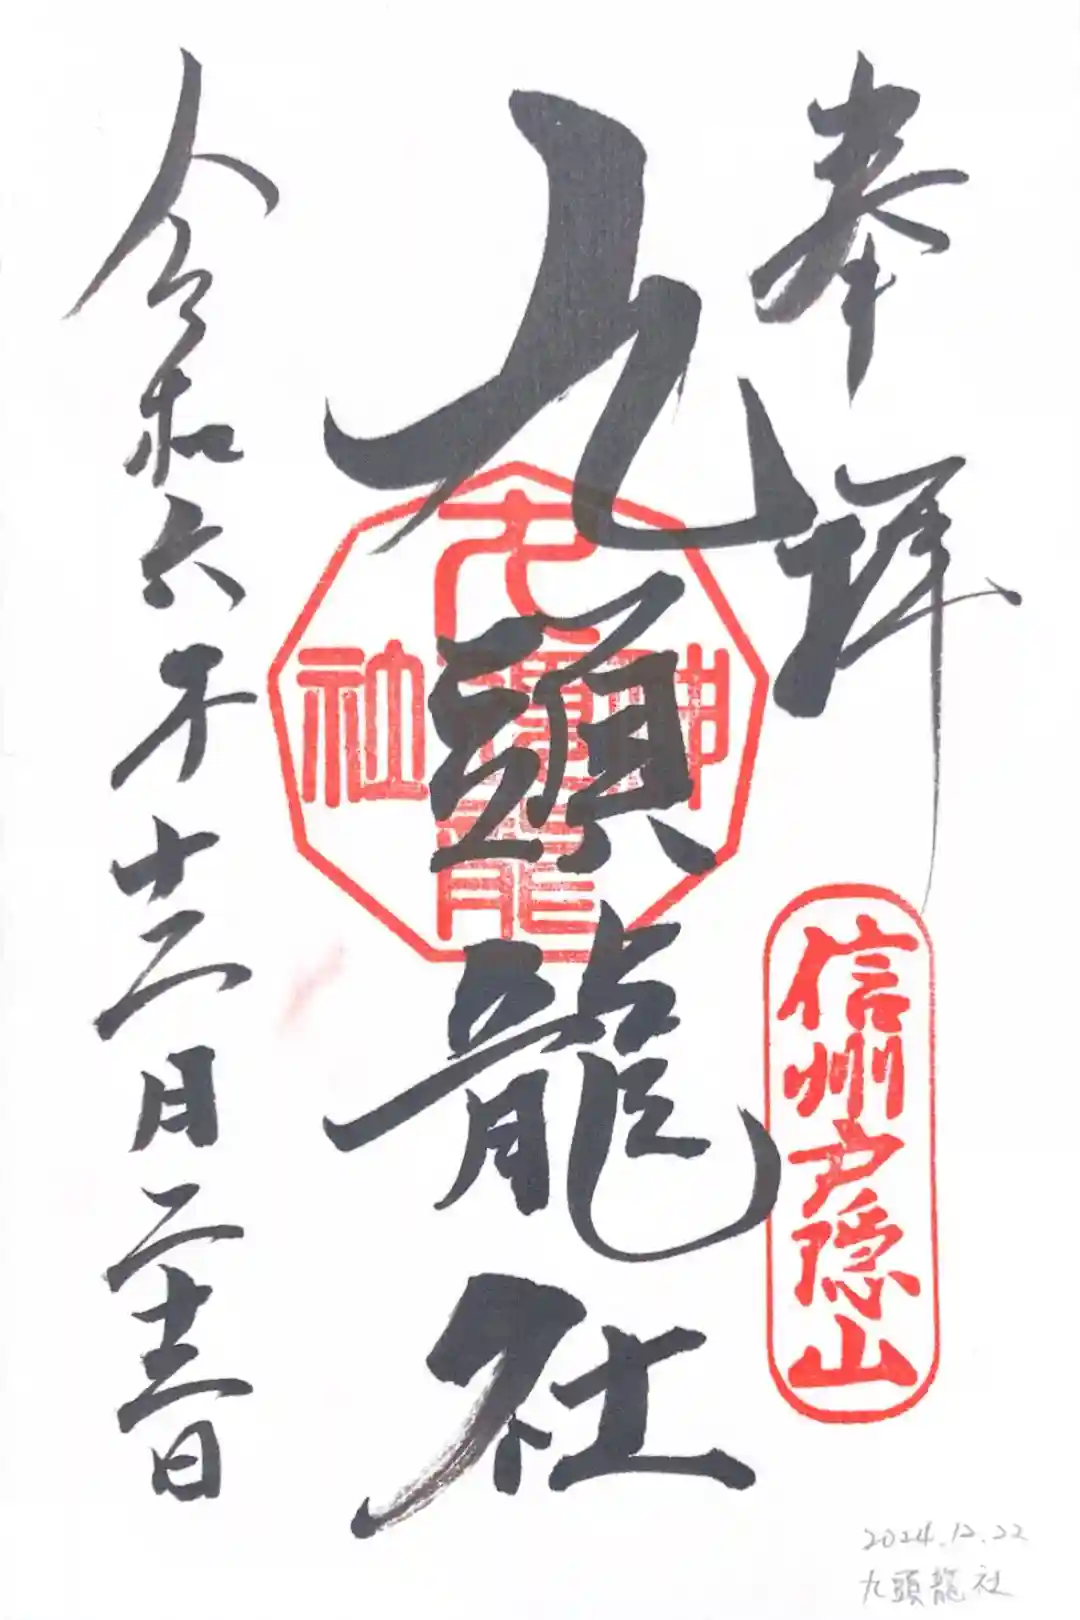 奉拝
信州戸隠山
九頭龍社
九頭龍社
令和六年十二月二十二日
2024.12.22
九頭龍社